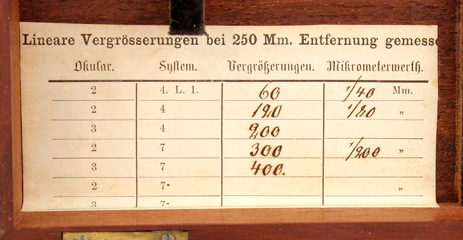 Lineare Vergrösserungen bei 250 Mm. Entfernung gemesse
Okular. System. Vergrößerungen. Mikrometerwerth.
2 4. L. 1. 60 1/40 Mm.
2 4 120 1/80 „
3 4 200
2 7 300 1/200 „
3 7 400.
2 7- „
3 7-